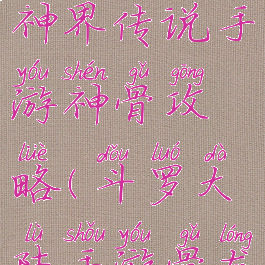 神界传说手
yóu shén gǔ gōng
游神骨攻
lüè dǒu luó dà
略(斗罗大
lù shǒu yóu gǔ lóng
陆手游骨龙